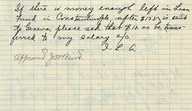 If there is money enough left in Loan
Fund in Constantinople, after $1235 is sent
to Geneva, please ask that $10 be trans-
ferred to my salary a/c.
Approved